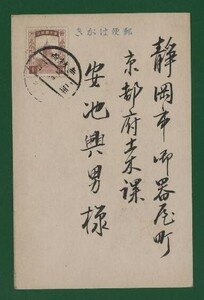 郵便はがき
静岡市御器屋町
京都府土木課
安池興男様